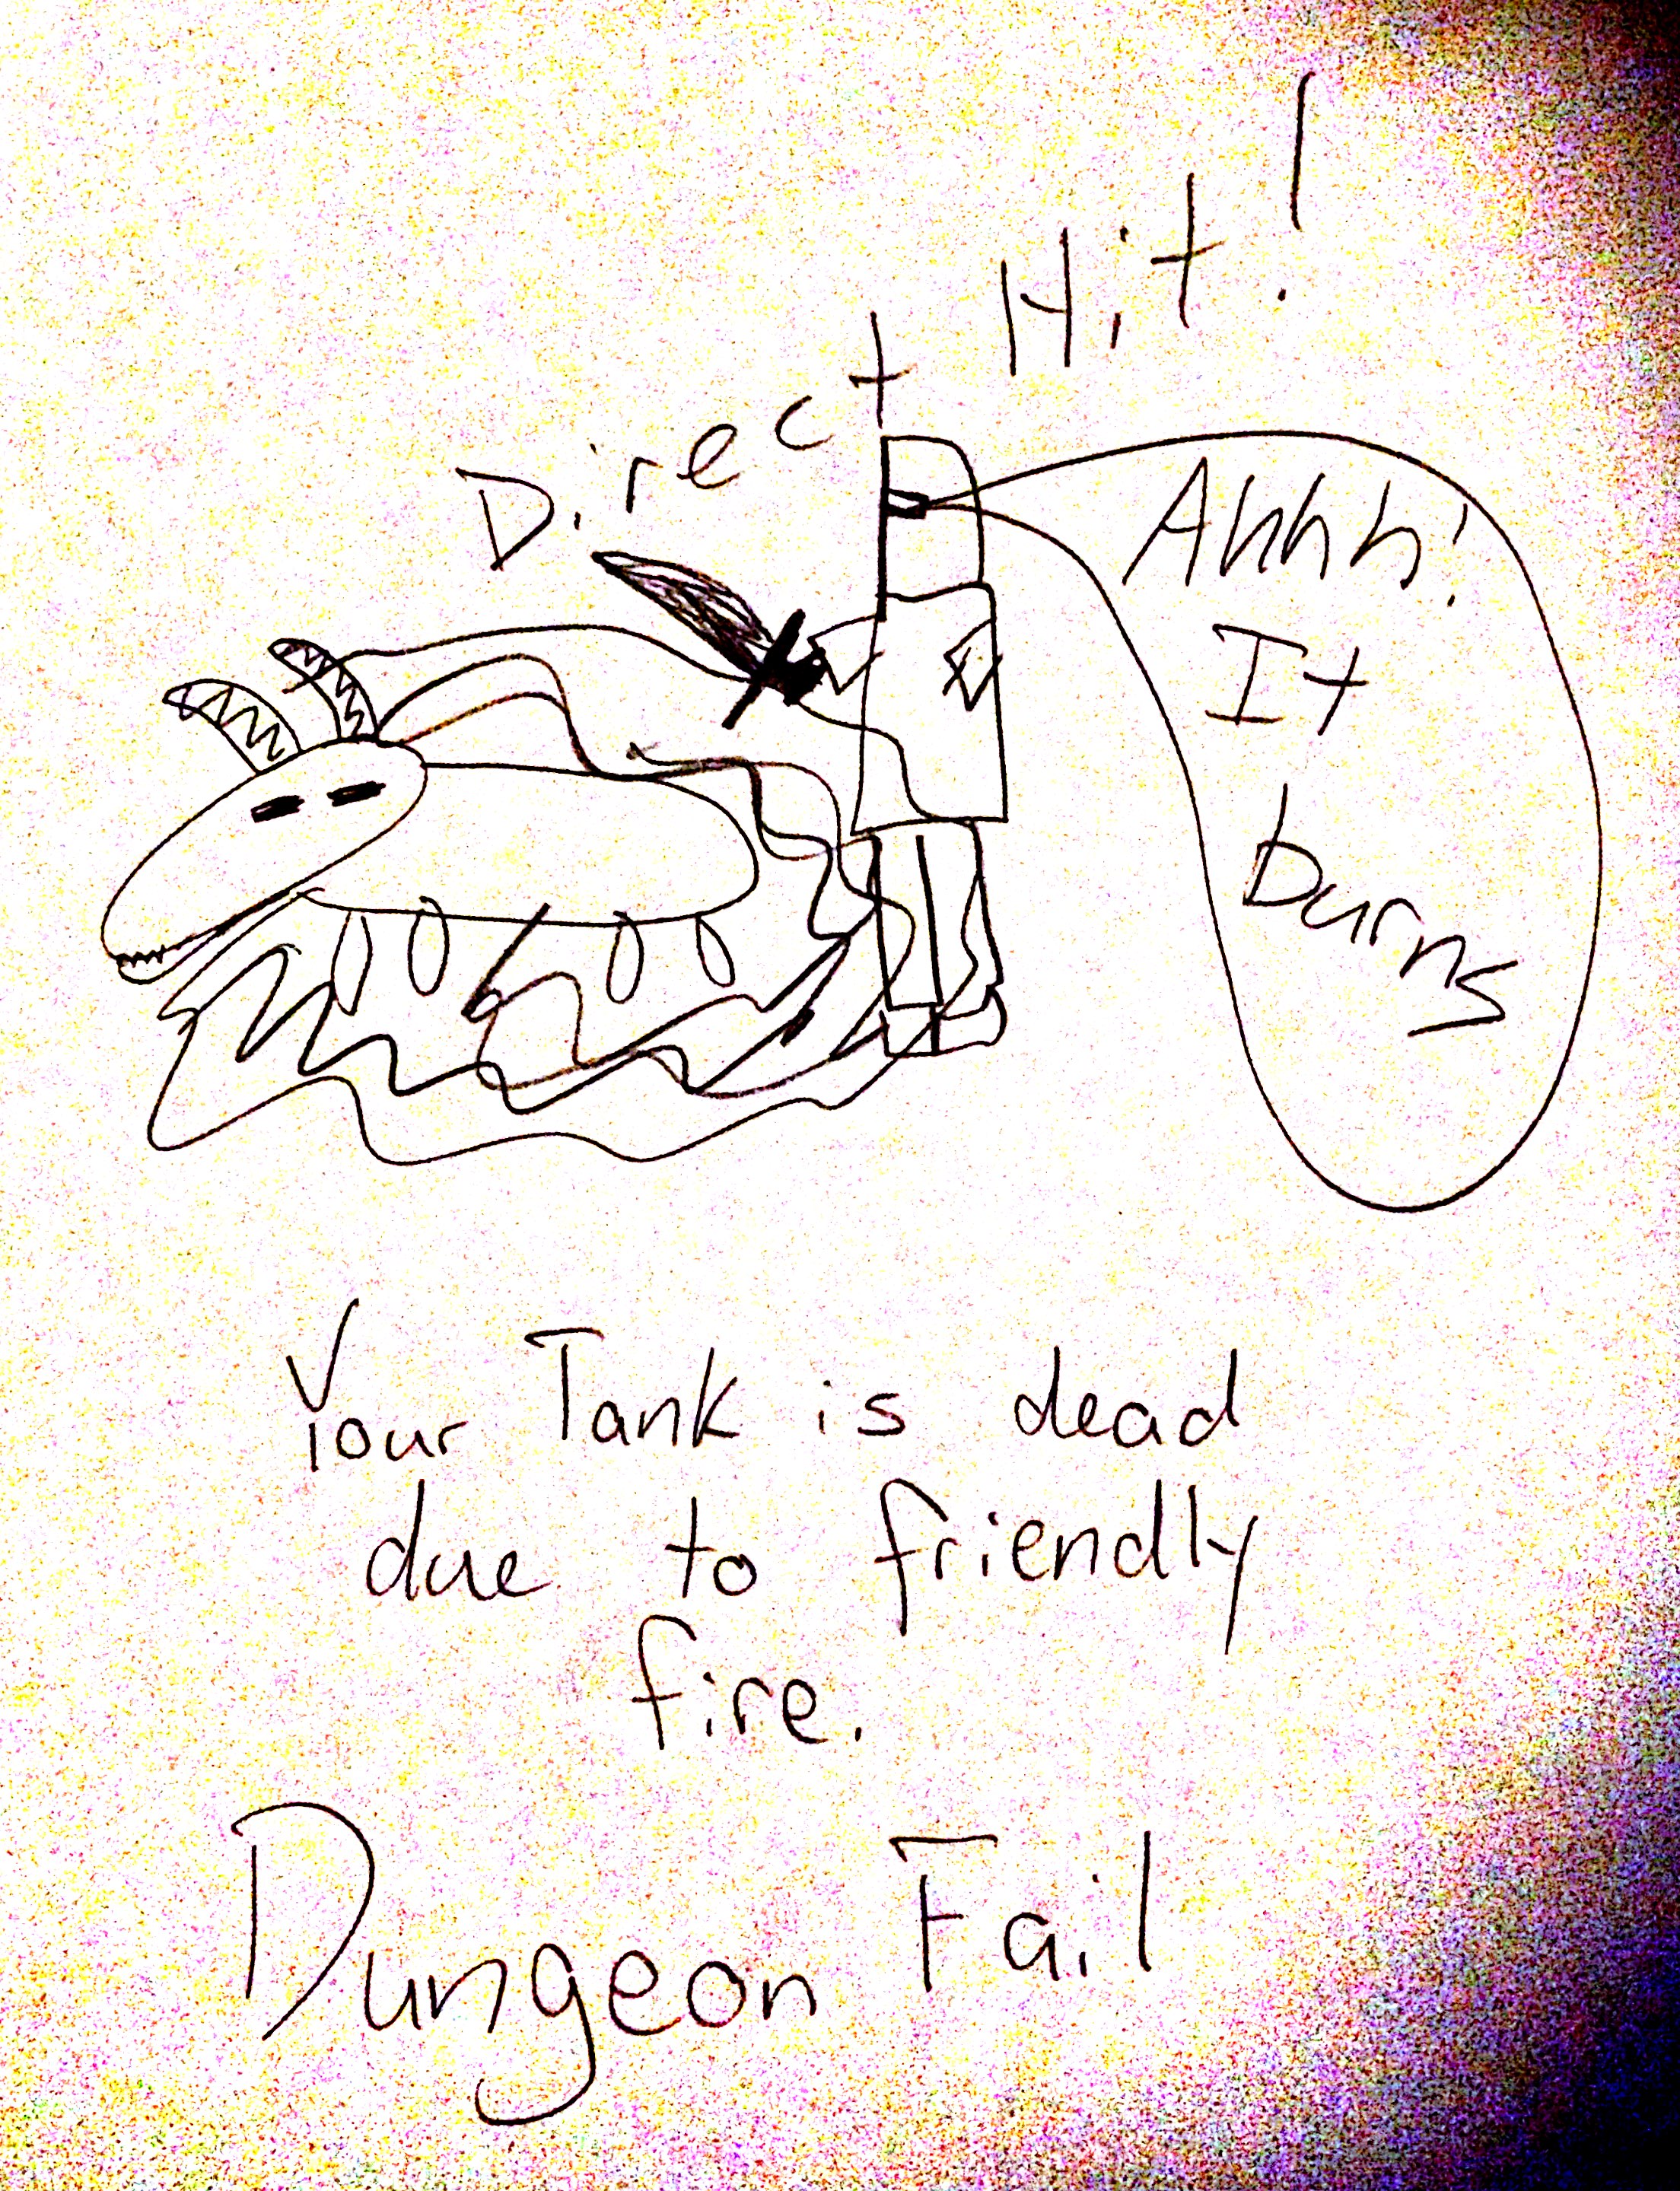 Direct Hit!
Ahhh!
It
burns
Your Tank is dead
due to friendly
fire.
Dungeon Fail